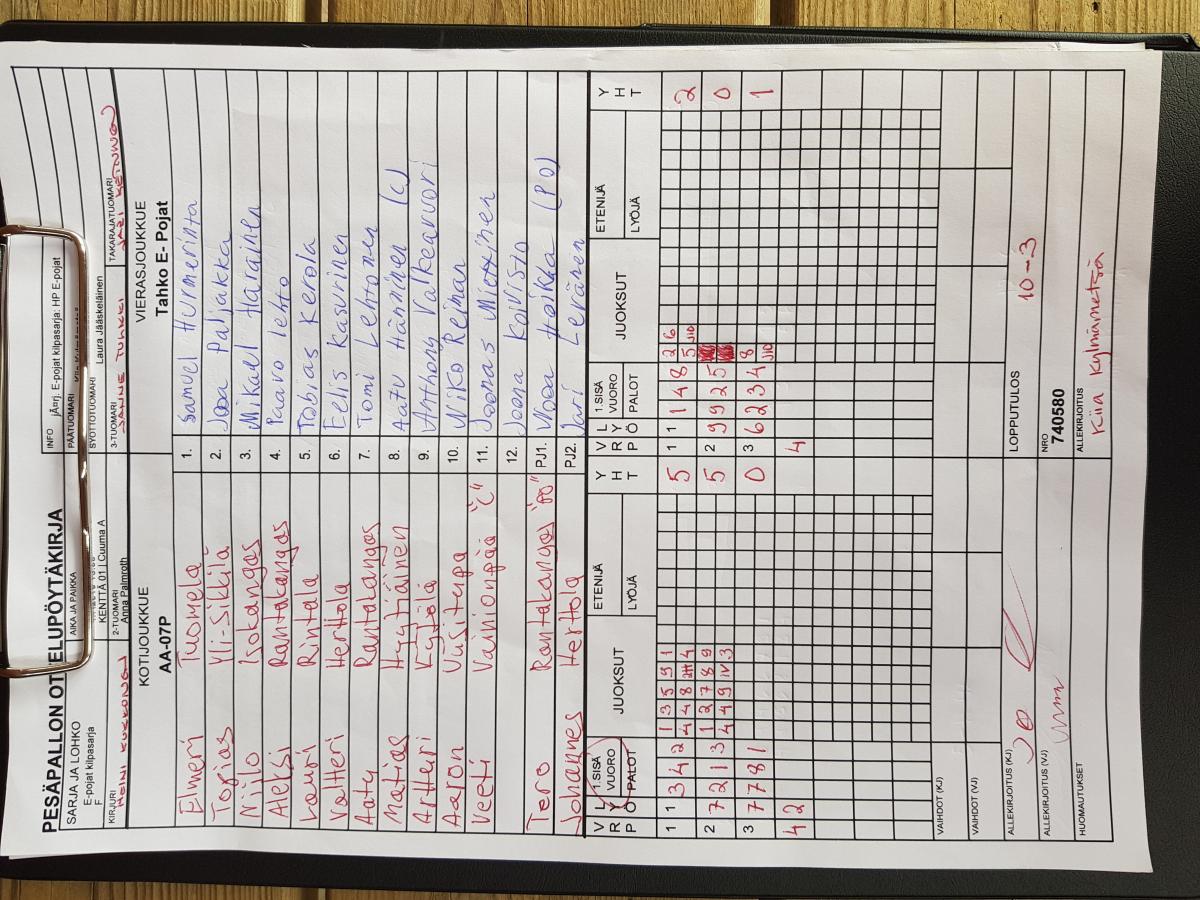 PESÄPALLON OTTELUPÖYTÄKIRJA
INFO jÄ¤rj. E-pojat kilpasarja: HP E-pojat
SARJA JA LOHKO
E-pojat kilpasarja
F
AIKA JA PAIKKA
KENTTÄ 01 | Cuuma A
PÄÄTUOMARI
SYÖTTÖTUOMARI
Laura Jääskeläinen
KIRJURI
2-TUOMARI
Anna Palmroth
3-TUOMARI
TAKARAJATUOMARI
KOTIJOUKKUE
AA-07P
VIERASJOUKKUE
Tahko E- Pojat
Elmeri Tuomela 1. Samuel Hurmerinta
Topias Yli-Sikkilä 2. Joa Paljakka
Niilo Isokangas 3. Mikael Harainen
Aleksi Rantakangas 4. Paavo Lehto
Lauri Rintala 5. Tobias Kerola
Valtteri Herttola 6. Eelis Kasurinen
Aatu Rantakangas 7. Tomi Lehtonen
Matias Hyytiäinen 8. Aatu Hänninen (C)
Artturi Kyttölä 9. Anthony Valkearuori
Aaron Uusitupa 10. Niko Reiman
Veeti Vainionpää "C" 11. Joonas Miettinen
12. Joona Koivisto
Tero Rantakangas "PO" PJ1. Nooa Hoikka (PO)
Johannes Herttola PJ2. Jari Leränen
V R P L Y Ö 1.SISÄ VUORO PALOT JUOKSUT ETENIJÄ LYÖJÄ Y H T V R P L Y Ö 1.SISÄ VUORO PALOT JUOKSUT ETENIJÄ LYÖJÄ Y H T
1 1 3 4 2 1 3 5 9 1 5 1 1 1 4 8 2 6 2
4 4 8 4 5
2 7 2 1 3 1 2 7 8 9 5 2 9 9 2 5 0
4 4 9 IV 3
3 7 7 8 1 0 3 6 2 3 4 8 1
4 2 4
VAIHDOT (KJ)
VAIHDOT (VJ)
ALLEKIRJOITUS (KJ)
LOPPUTULOS 10-3
ALLEKIRJOITUS (VJ)
NRO
740580
HUOMAUTUKSET
ALLEKIRJOITUS
Kiia Kylmämetsä